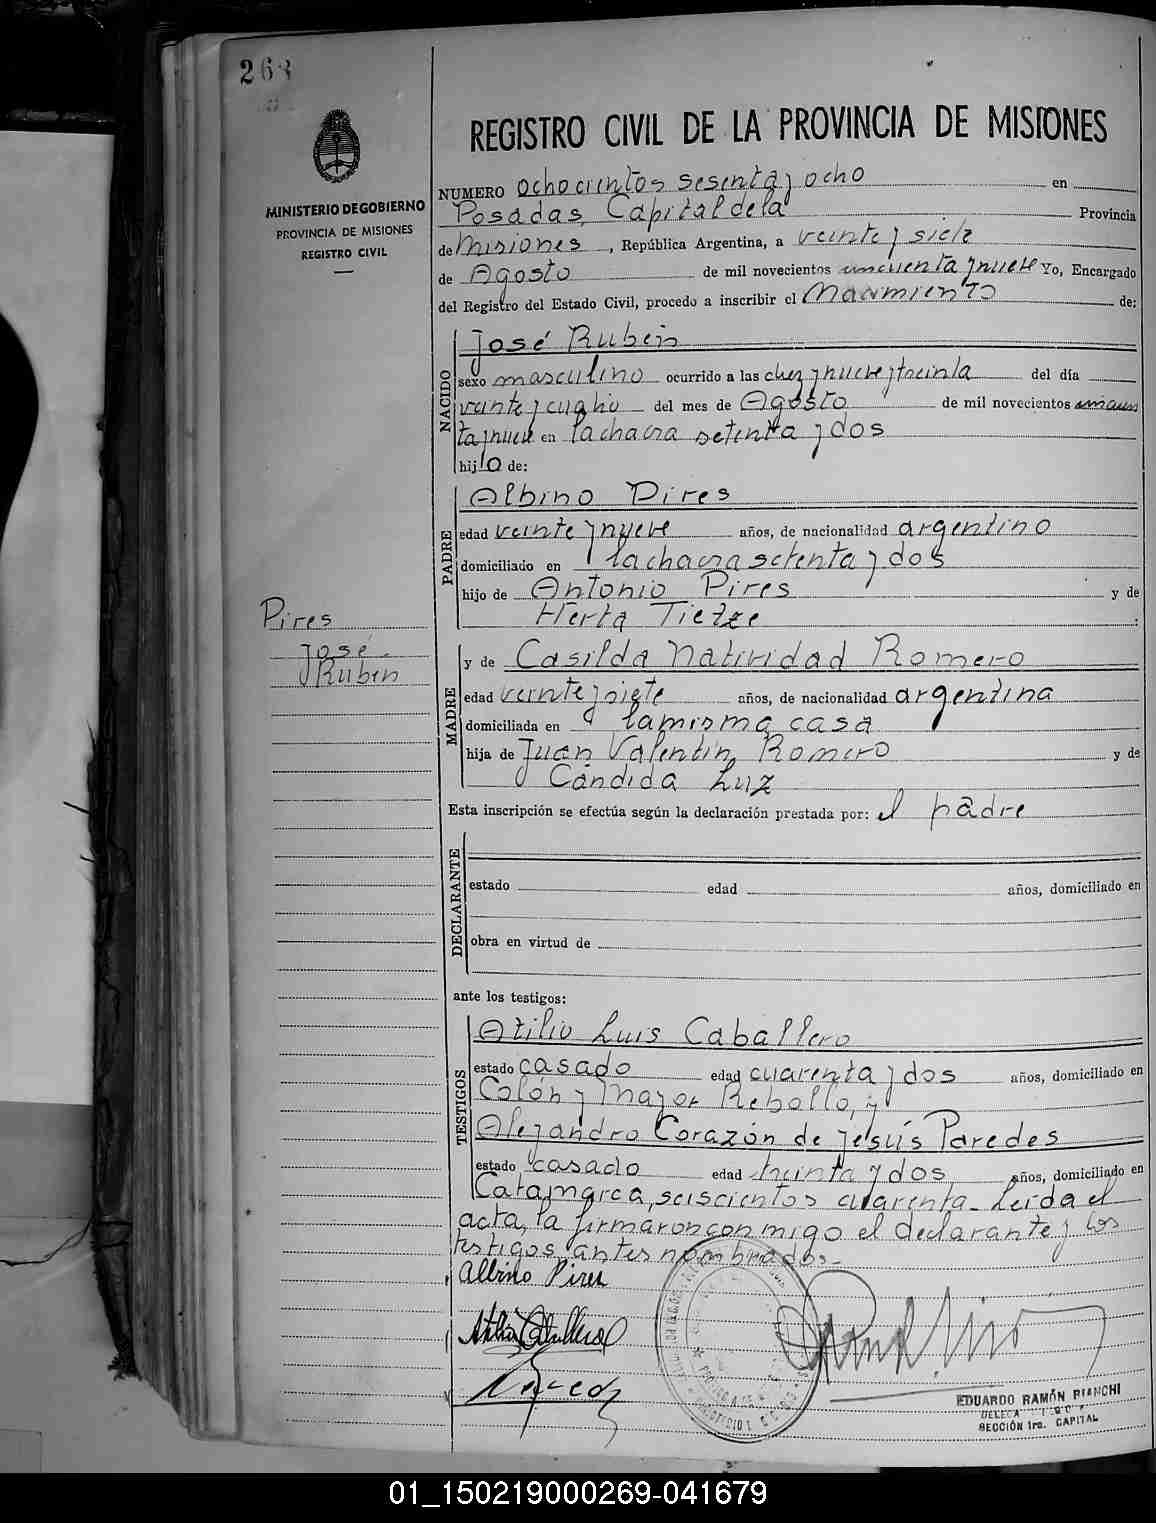 268
MINISTERIO DE GOBIERNO
PROVINCIA DE MISIONES
REGISTRO CIVIL
REGISTRO CIVIL DE LA PROVINCIA DE MISIONES
NUMERO ochocientos sesenta y ocho en
Posadas, Capital de la Provincia
de Misiones, República Argentina, a veinte y siete
de Agosto de mil novecientos cincuenta y nueve Yo, Encargado
del Registro del Estado Civil, procedo a inscribir el Nacimiento de:
NACIDO
José Ruben
sexo masculino ocurrido a las diez y nueve y treinta del día
veinte y cuatro del mes de Agosto de mil novecientos cincuen
ta y nueve en la chacra setenta y dos
hijo de:
PADRE
Albino Pires
edad veinte y nueve años, de nacionalidad argentino
domiciliado en la chacra setenta y dos
hijo de Antonio Pires y de
Herta Tietze
Pires
José
Ruben
MADRE
y de Casilda Natividad Romero
edad veinte y siete años, de nacionalidad argentina
domiciliada en la misma casa
hija de Juan Valentin Romero y de
Cándida Luz
Esta inscripción se efectúa según la declaración prestada por: el padre
DECLARANTE
estado edad años, domiciliado en
obra en virtud de
ante los testigos:
TESTIGOS
Atilio Luis Caballero
estado casado edad cuarenta y dos años, domiciliado en
Colón y Mayor Rebollo, y
Alejandro Corazón de Jesús Paredes
estado casado edad treinta y dos años, domiciliado en
Catamarca, seiscientos cuarenta. Leída el
acta, la firmaron conmigo el declarante y los
testigos antes nombrados.
Albino Pires
EDUARDO RAMÓN BIANCHI
SECCIÓN 1ra. CAPITAL
01_150219000269-041679